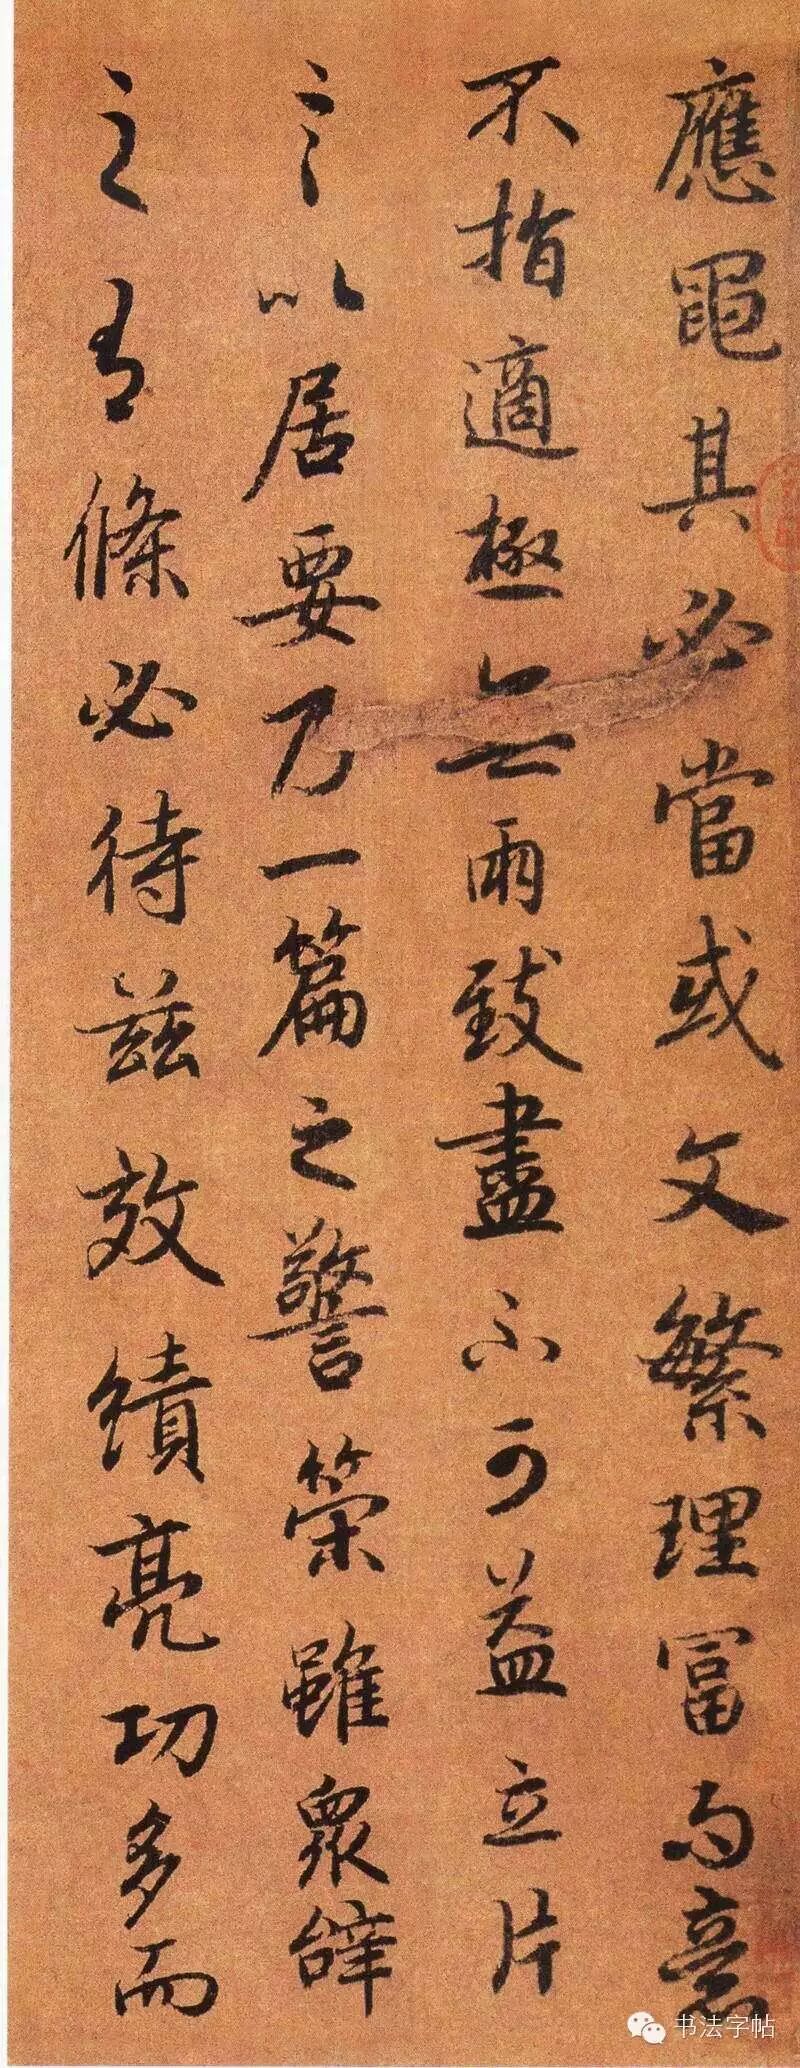 應黽其必當或文繁理富而意
不指適極無兩致盡不可益立片
言以居要乃一篇之警策雖眾辭
之有條必待茲效績亮功多而
书法字帖